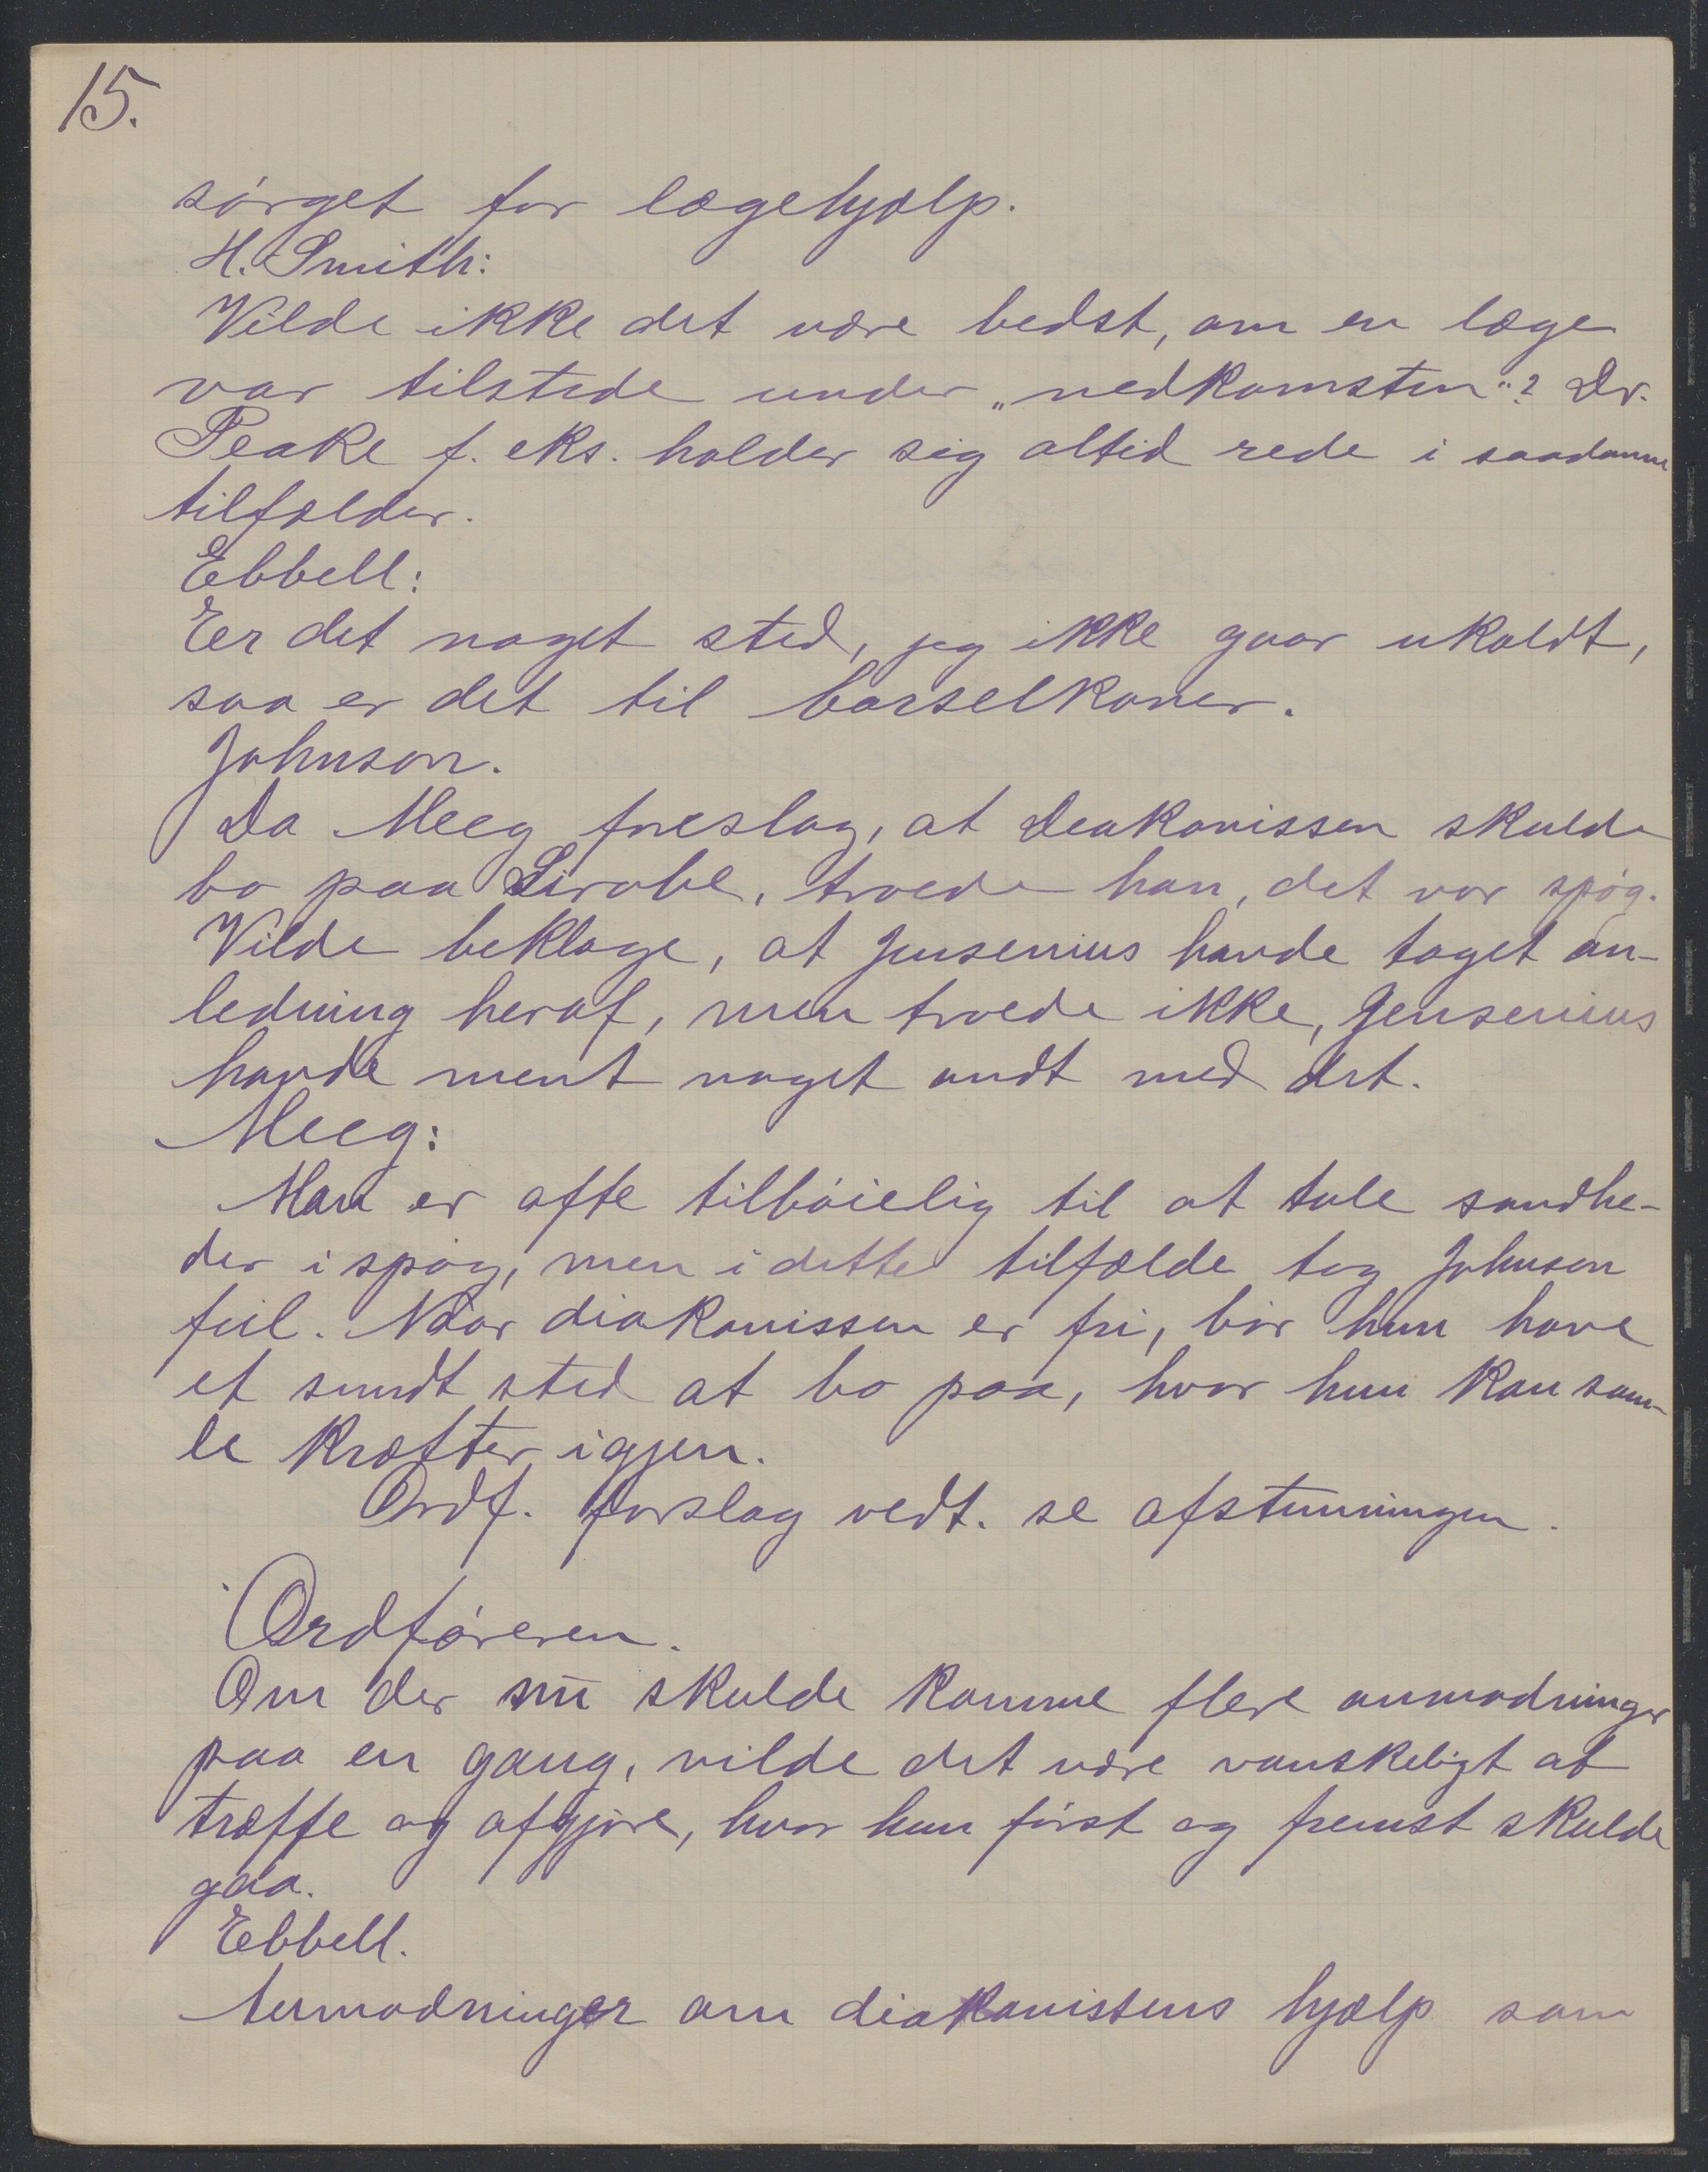 15.
sørget for lægehjælp.
H. Smith:
Vilde ikke det være bedst, om en læge
var tilstede under „nedkomsten"? Dr.
Peake f. eks. holder sig altid rede i saadanne
tilfælder.
Ebbell:
Er det noget sted, jeg ikke gaar ukaldt,
saa er det til barselkoner.
Johnson.
Da Meeg foreslog, at deakonissen skulde
bo paa Sirabe, troede han, det var spøg.
Vilde beklage, at Jensenius havde taget an-
ledning heraf, men troede ikke, Jensenius
havde ment noget ondt med det.
Meeg:
Man er ofte tilbøielig til at tale sandhe-
der i spøg, men i dette tilfælde tog Johnson
feil. Naar diakonissen er fri, bør hun have
et sundt sted at bo paa, hvor hun kan sam-
le kræfter igjen.
Ordf. forslag vedt. se afstemningen.
Ordføreren.
Om der nu skulde komme flere anmodninger
paa en gang, vilde det være vanskeligt at
træffe og afgjøre, hvor hun først og fremst skulde
gaa.
Ebbell.
Anmodninger om diakonissens hjælp som